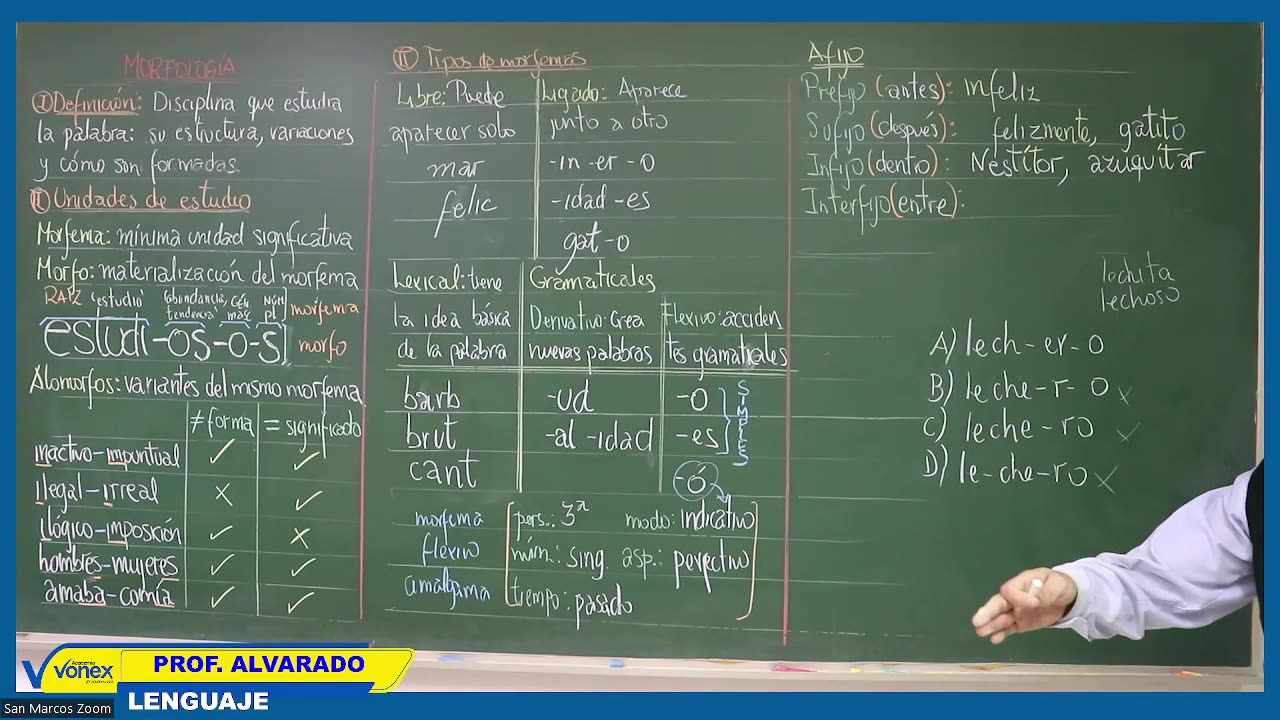 MORFOLOGÍA
I Definición: Disciplina que estudia
la palabra: su estructura, variaciones
y cómo son formadas.
II Unidades de estudio
Morfema: mínima unidad significativa
Morfo: materialización del morfema
RAÍZ 'estudio' 'abundancia, tendencia' Gén masc Núm pl morfema
estudi-os-o-s morfo
Alomorfos: variantes del mismo morfema
≠ forma = significado
inactivo-impuntual ✓ ✓
ilegal-irreal X ✓
ilógico-imposición ✓ X
hombres-mujeres ✓ ✓
amaba-comía ✓ ✓
II Tipos de morfemas
Libre: Puede
aparecer solo
mar
felic
Ligado: Aparece
junto a otro
-in -er -o
-idad -es
gat-o
Lexical: tiene
la idea básica
de la palabra
Gramaticales
Derivativo: Crea
nuevas palabras
Flexivo: acciden
tes gramaticales
barb -ud -o
brut -al -idad -es
cant -ó
SIMPLES
morfema
flexivo
amalgama
pers.: 3ª modo: indicativo
núm.: sing. asp.: perfectivo
tiempo: pasado
Afijo
Prefijo (antes): infeliz
Sufijo (después): felizmente, gatito
Infijo (dentro): Nestítor, azuquítar
Interfijo (entre):
lechita
lechoso
A) lech-er-o
B) leche-r-o X
C) leche-ro X
D) le-che-ro X
Academia
Vonex
PROF. ALVARADO
LENGUAJE
San Marcos Zoom